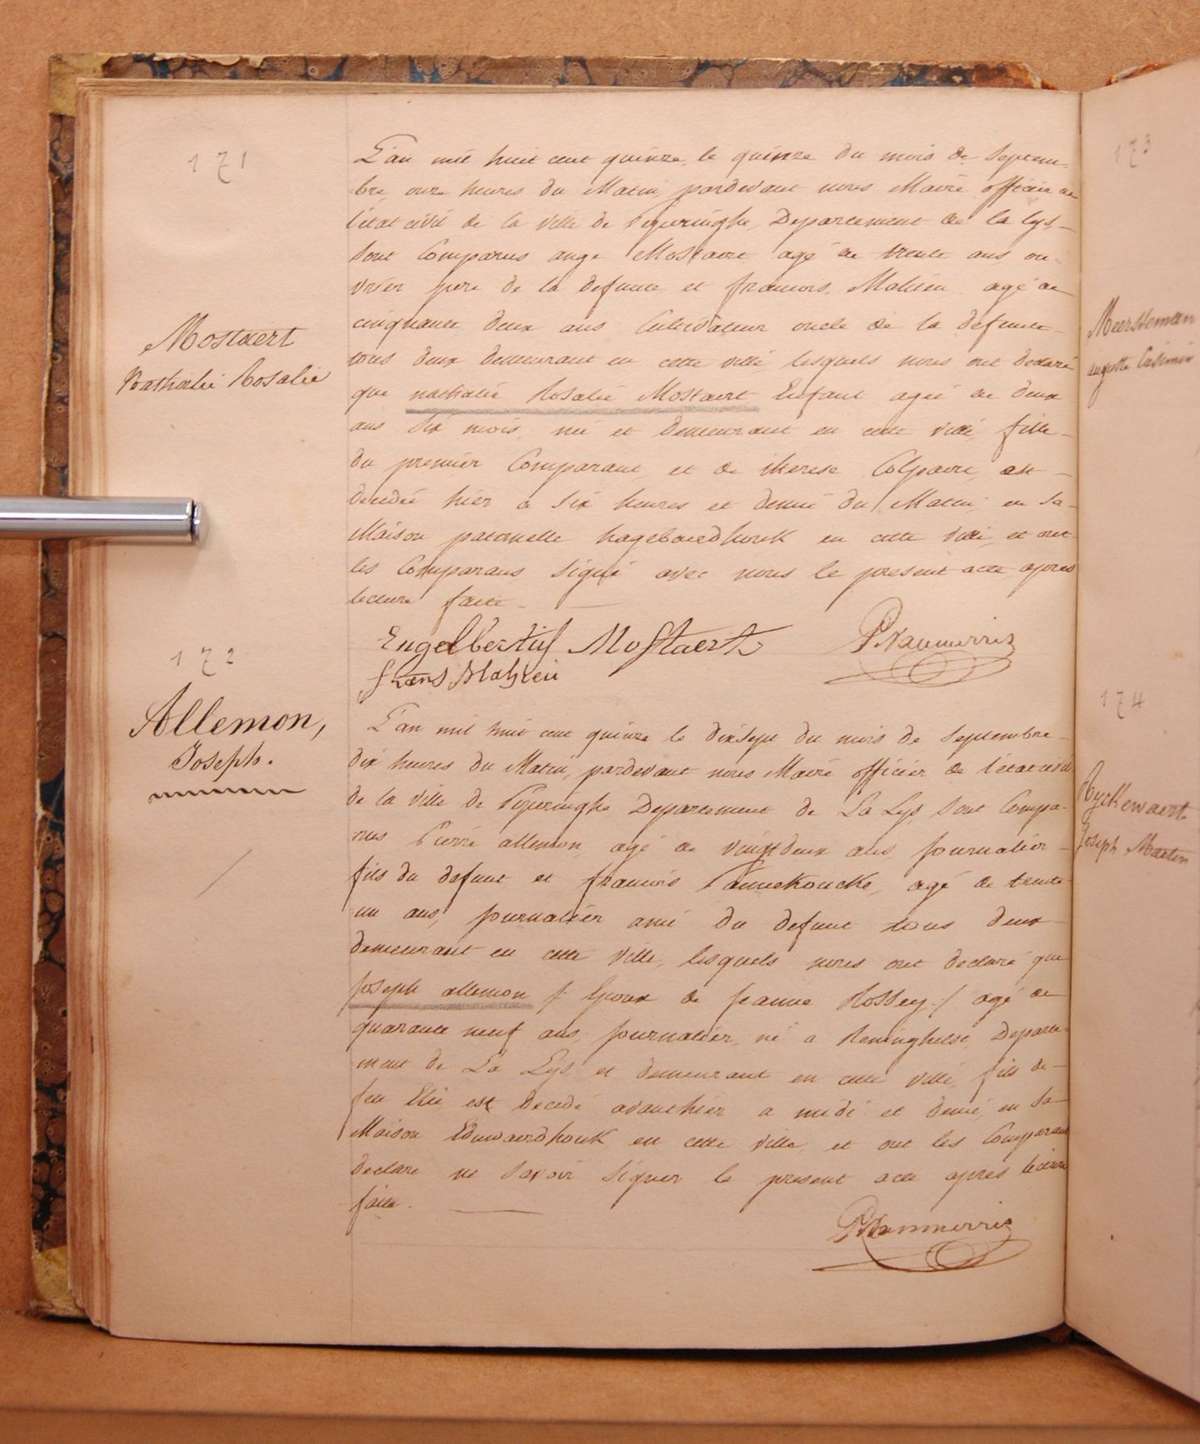 171
L'an mil huit cent quinze le quinze du mois de Septem-
bre, onze heures du Matin pardevant nous Maire officier de
l'état civil de la ville de Poperinghe, Departement de la Lys
sont Comparus ange Mostaert agé de trente ans ou-
vrier pere de la defunte et francois Mahieu agé de
cinquante deux ans Cultivateur oncle de la defunte
tous deux demeurant en cette ville lesquels nous ont declaré
que nathalie Rosalie Mostaert Enfant agée de deux
ans six mois, née et demeurant en cette ville, fille
du premier Comparant, et de therese Colpaert, est
decedée hier a six heures et demie du Matin en sa
Maison paternelle en cette ville, et ont
les Comparans signé avec nous le present acte apres
lecture faite.
Mostaert
Nathalie Rosalie
Engelbertus Mostaert
frans Mahieu
P. Vanmerris
172
Allemon,
Joseph.
L'an mil huit cent quinze le dixsept du mois de Septembre
dix heures du Matin, pardevant nous Maire officier de l'état civil
de la ville de Poperinghe Departement de La Lys sont Compa-
rus Pierre allemon, agé de vingt deux ans, journalier
fils du defunt et francois agé de trente
un ans, journalier ami du defunt tous deux
demeurant en cette ville, lesquels nous ont declaré que
Joseph allemon /: Epoux de jeanne Rossey :/ agé de
quarante neuf ans, journalier, né a Reninghelst, Departe-
ment de La Lys et demeurant en cette ville, fils de
feu Elie est decedé avanthier a midi et demie, en sa
Maison en cette ville, et ont les Comparans
declaré ne savoir signer le present acte apres lecture
faite.
P. Vanmerris
173
Meersseman
auguste Casimir
174
Ryckewaert
Joseph Martin